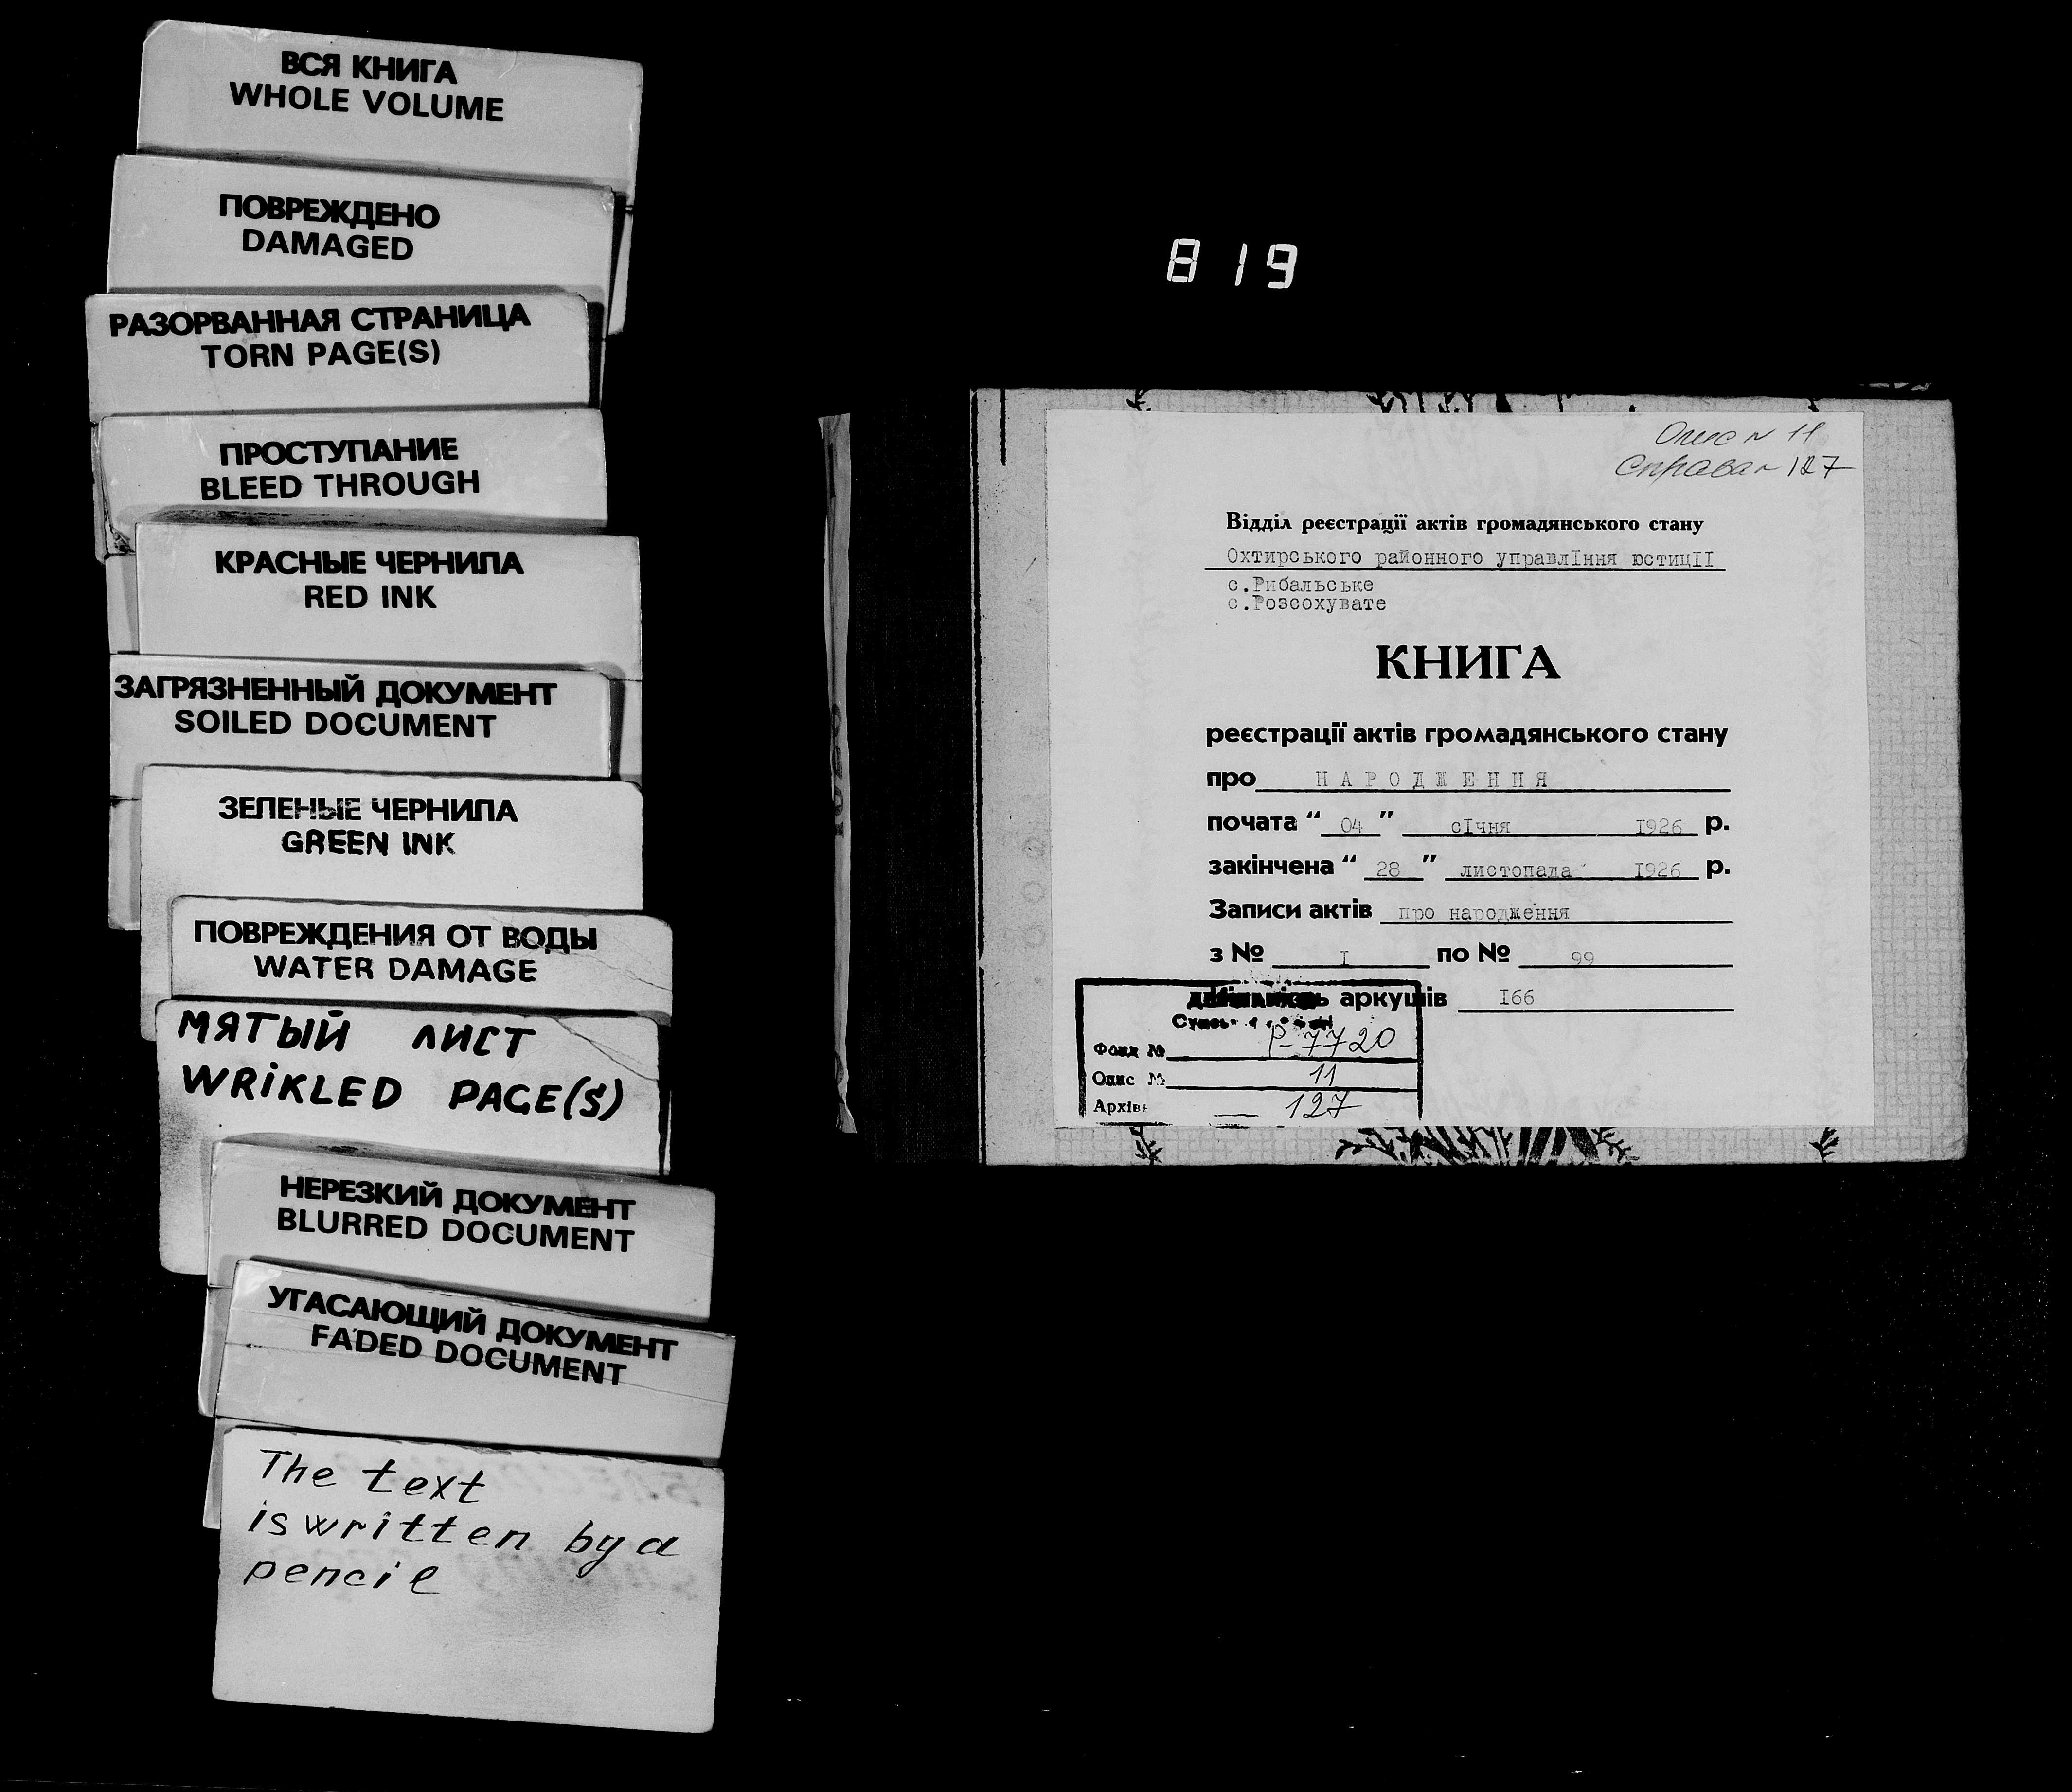 ВСЯ КНИГА
WHOLE VOLUME
ПОВРЕЖДЕНО
DAMAGED
РАЗОРВАННАЯ СТРАНИЦА
TORN PAGE(S)
ПРОСТУПАНИЕ
BLEED THROUGH
КРАСНЫЕ ЧЕРНИЛА
RED INK
ЗАГРЯЗНЕННЫЙ ДОКУМЕНТ
SOILED DOCUMENT
ЗЕЛЕНЫЕ ЧЕРНИЛА
GREEN INK
ПОВРЕЖДЕНИЯ ОТ ВОДЫ
WATER DAMAGE
МЯТЫЙ ЛИСТ
WRIKLED PAGE(S)
НЕРЕЗКИЙ ДОКУМЕНТ
BLURRED DOCUMENT
УГАСАЮЩИЙ ДОКУМЕНТ
FADED DOCUMENT
The text
is written by a
pencil
819
Опис N 11
Справа N 127
Відділ реєстрації актів громадянського стану
Охтирського районного управлIння юстицII
с.Рибальське
с.Розсохувате
КНИГА
реєстрації актів громадянського стану
про НАРОДЖЕННЯ
почата “ 04 ” сIчня I926 р.
закінчена “ 28 ” листопада I926 р.
Записи актів про народження
з № I по № 99
аркушів I66
Фонд № Р-7720
Опис № 11
127